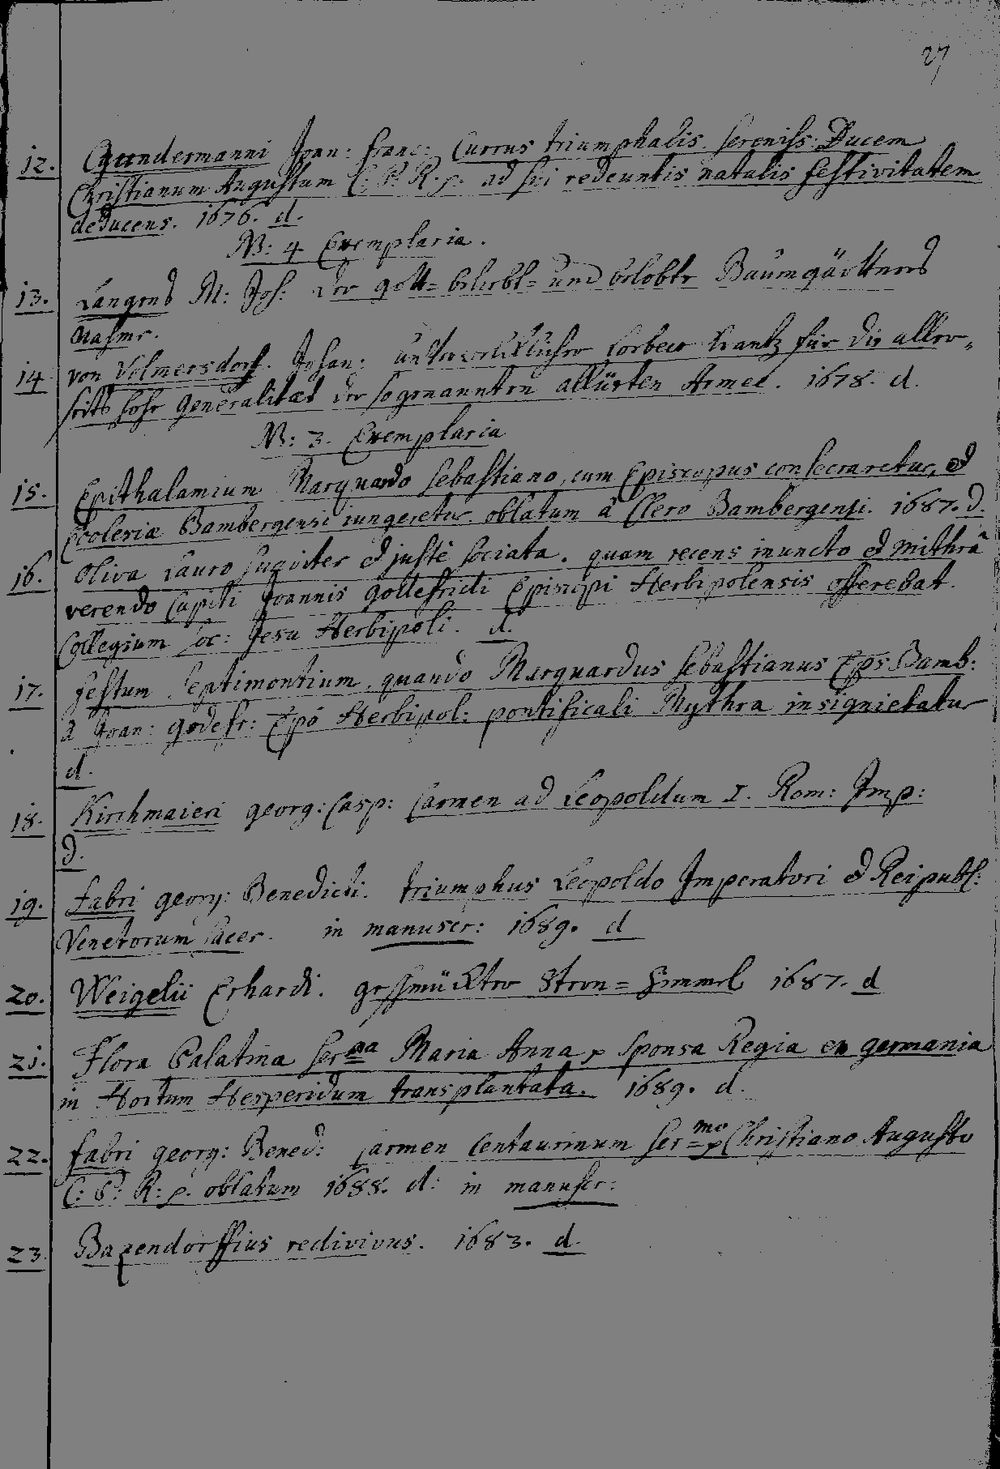 27
12. Gundermanni Joan: Franc: Currus triumphalis sereniss: Ducem
Christianum Augustum C. P. R. p. ad sui redeuntis natalis festivitatem
deducens. 1676. d.
NB: 4 Exemplaria.
13. Langens M: Joh: der gott= beliebt= und belobte Baumgärttners
Nahme.
14 von Volmersdorf. Johan: unverwelklicher Lorbeer Krantz für die aller=
seits hohe Generalitæt der sogenannten alliirten Armee. 1678. d.
NB: 3. Exemplaria
15. Epithalamium Marquardo Sebastiano, cum Episcopus consecraretur, et
Ecclesiæ Bambergensi iungeretur. oblatum â Clero Bambergensi. 1687. d.
16. Oliva Lauro suaviter et justè sociata. quam recens inuncto et Mithrâ
verendo Capiti Joannis Gottefridi Episcopi Herbipolensis offerebat
Collegium Soc: Jesu Herbipoli. d.
17. Festum Septimontium, quando Marquardus Sebastianus Eps Bamb:
â Joan: Godefr: Epô Herbipol: pontificali Mythra insignietatur
d.
18. Kirchmaieri Georg: Casp: Carmen ad Leopoldum I. Rom: Imp:
d.
19. Fabri Georg: Benedicti. triumphus Leopoldo Imperatori et Reipubl:
Venetorum sacer. in manuscr: 1689. d
20. Weigelii Erhardi. geschmückter Stern= Himmel 1687. d
21. Flora Palatina Ser=ma Maria Anna p Sponsa Regia ex germania
in Hortum Hesperidum transplantata. 1689. d.
22. Fabri Georg: Bened: Carmen Centaurinum Ser=mo p Christiano Augusto
C: P: R: p. oblatum 1688. d: in manuscr:
23 Bazendorffius redivivus. 1683. d.